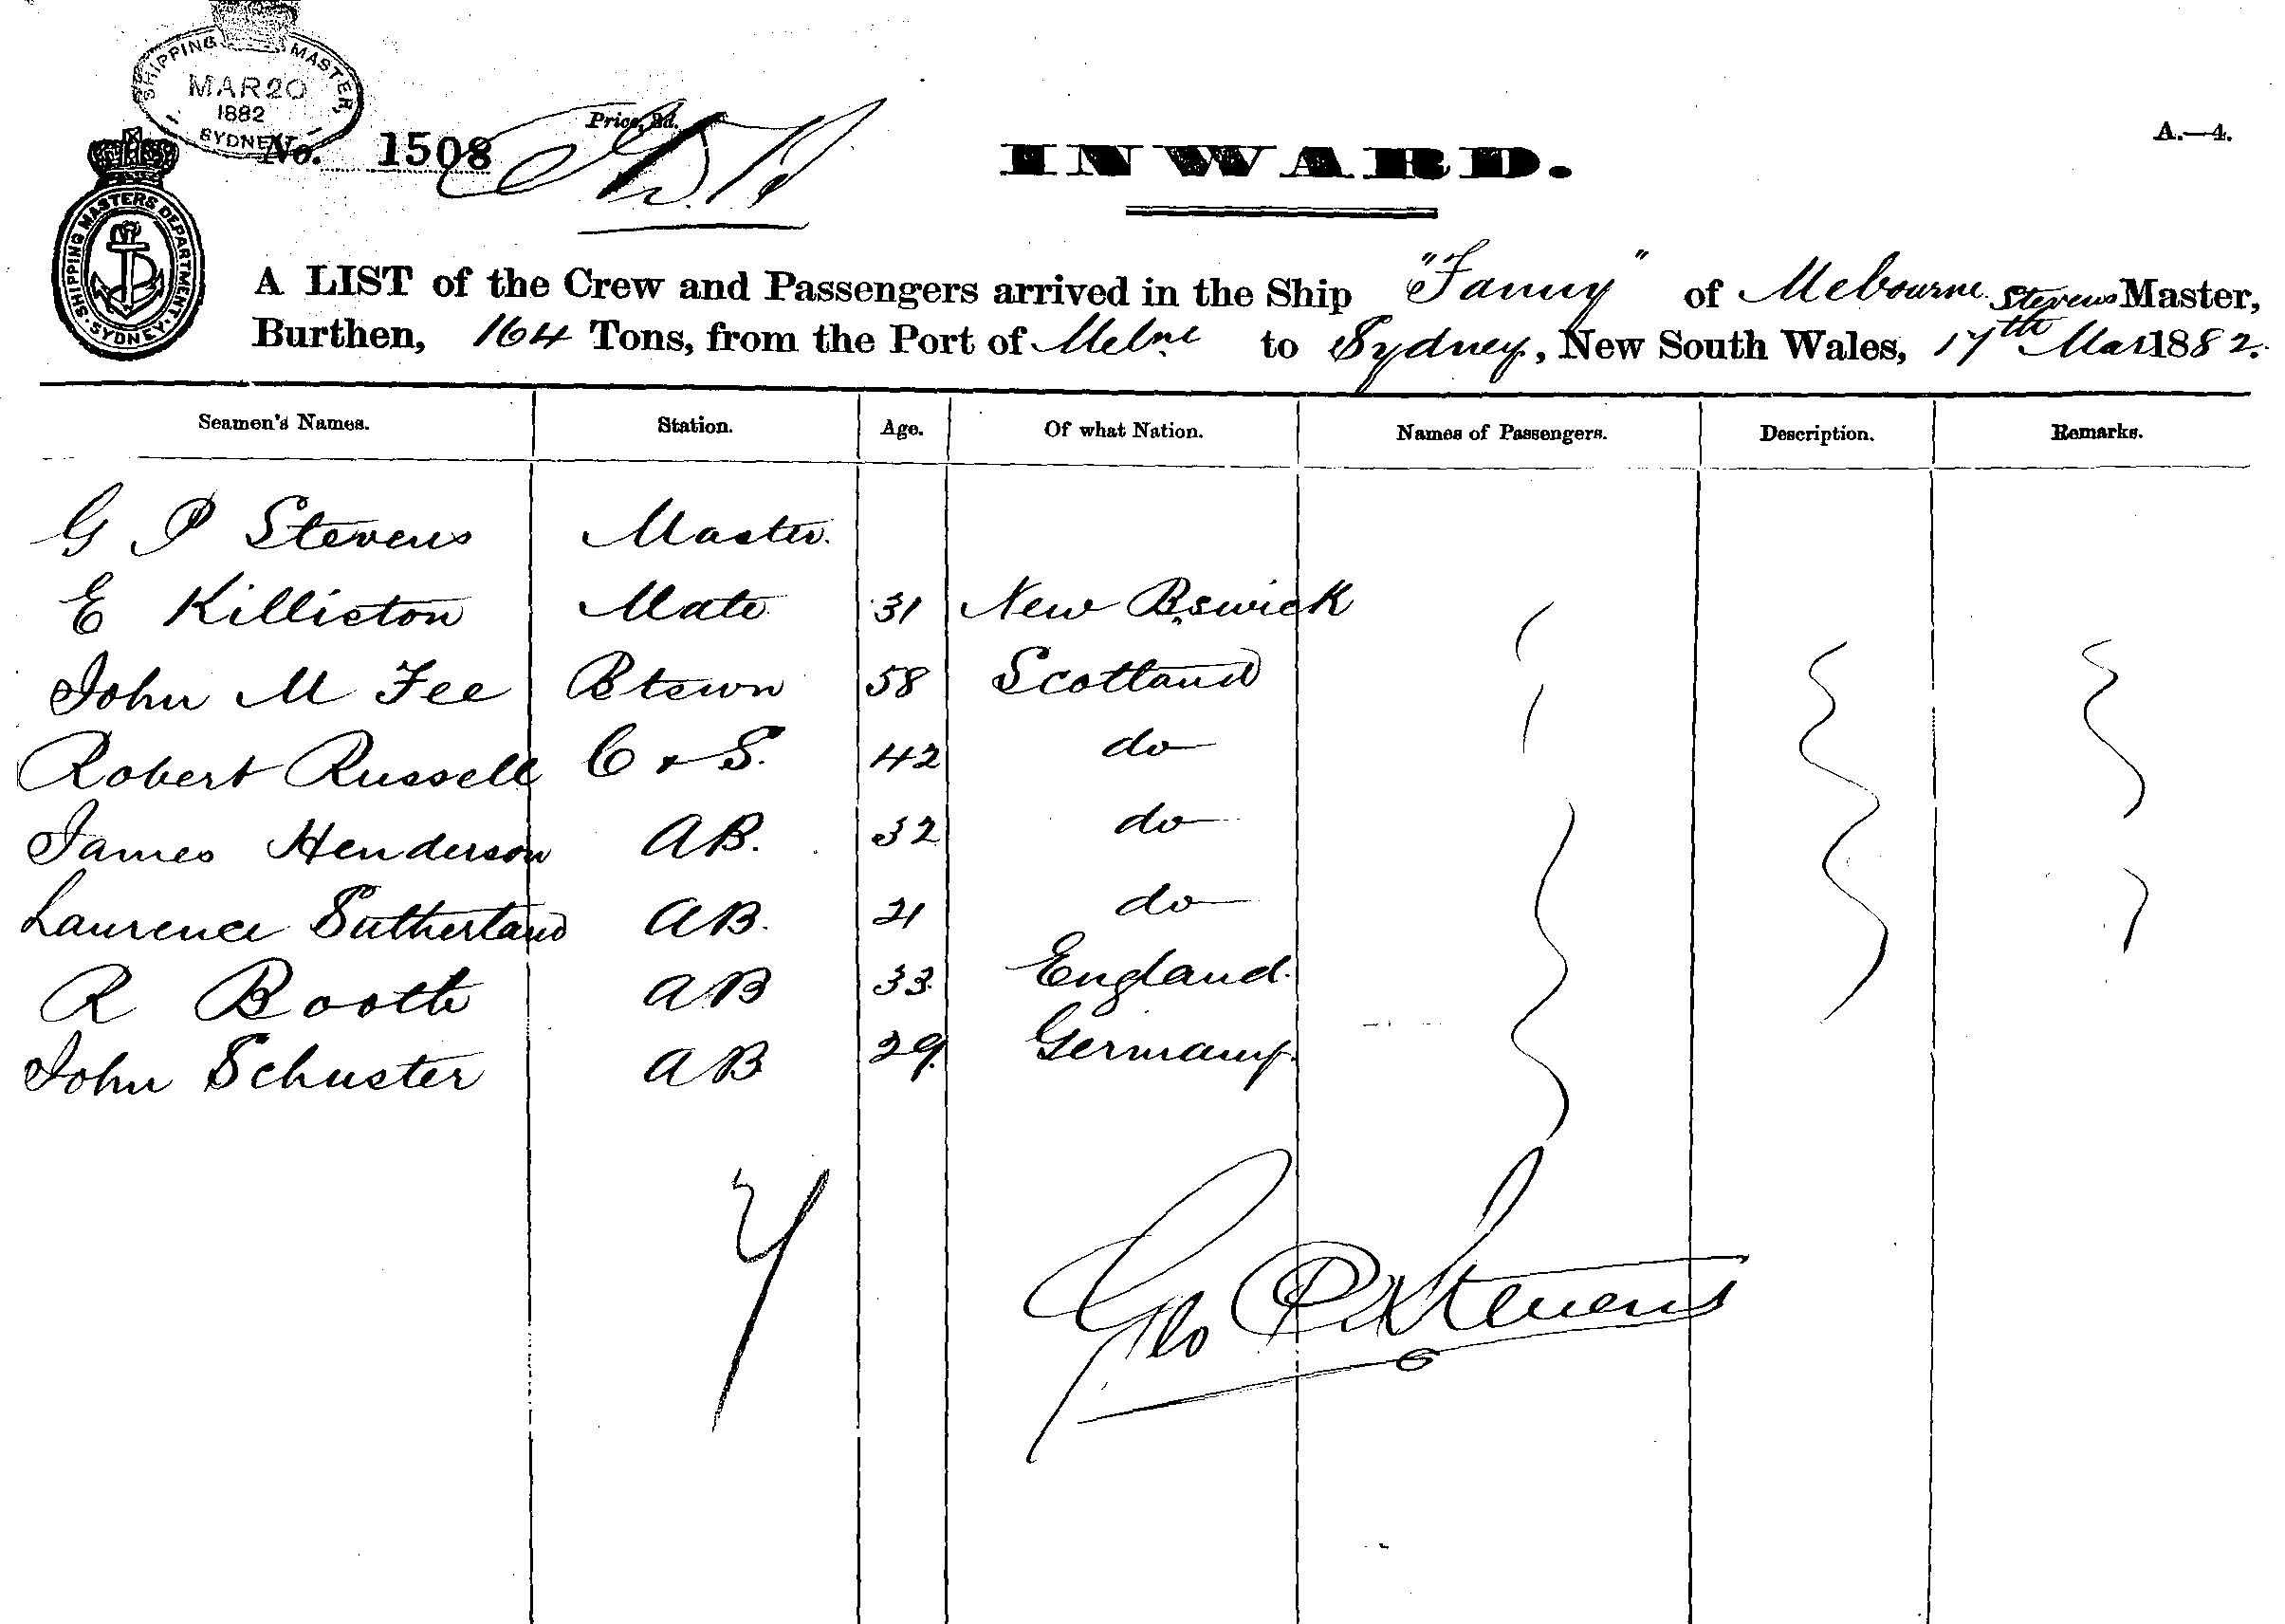 SHIPPING MASTER,
MAR 20
1882
SYDNEY
No. 1508
Price, 3d.
INWARD.
A.—4.
SHIPPING MASTERS DEPARTMENT. SYDNEY.
A LIST of the Crew and Passengers arrived in the Ship "Fanny" of Mebourne Stevens Master,
Burthen, 164 Tons, from the Port of Melne to Sydney, New South Wales, 17th Mar 1882.
Seamen's Names. Station. Age. Of what Nation. Names of Passengers. Description. Remarks.
G P Stevens Master.
E Killiston Mate 31 New Bswick
John M Fee Btswn 58 Scotland
Robert Russell C & S. 42 do
James Henderson AB. 32 do
Laurence Sutherland AB. 21 do
R Booth AB 33 England.
John Schuster AB 29. Germany.
7
Geo P Stevens